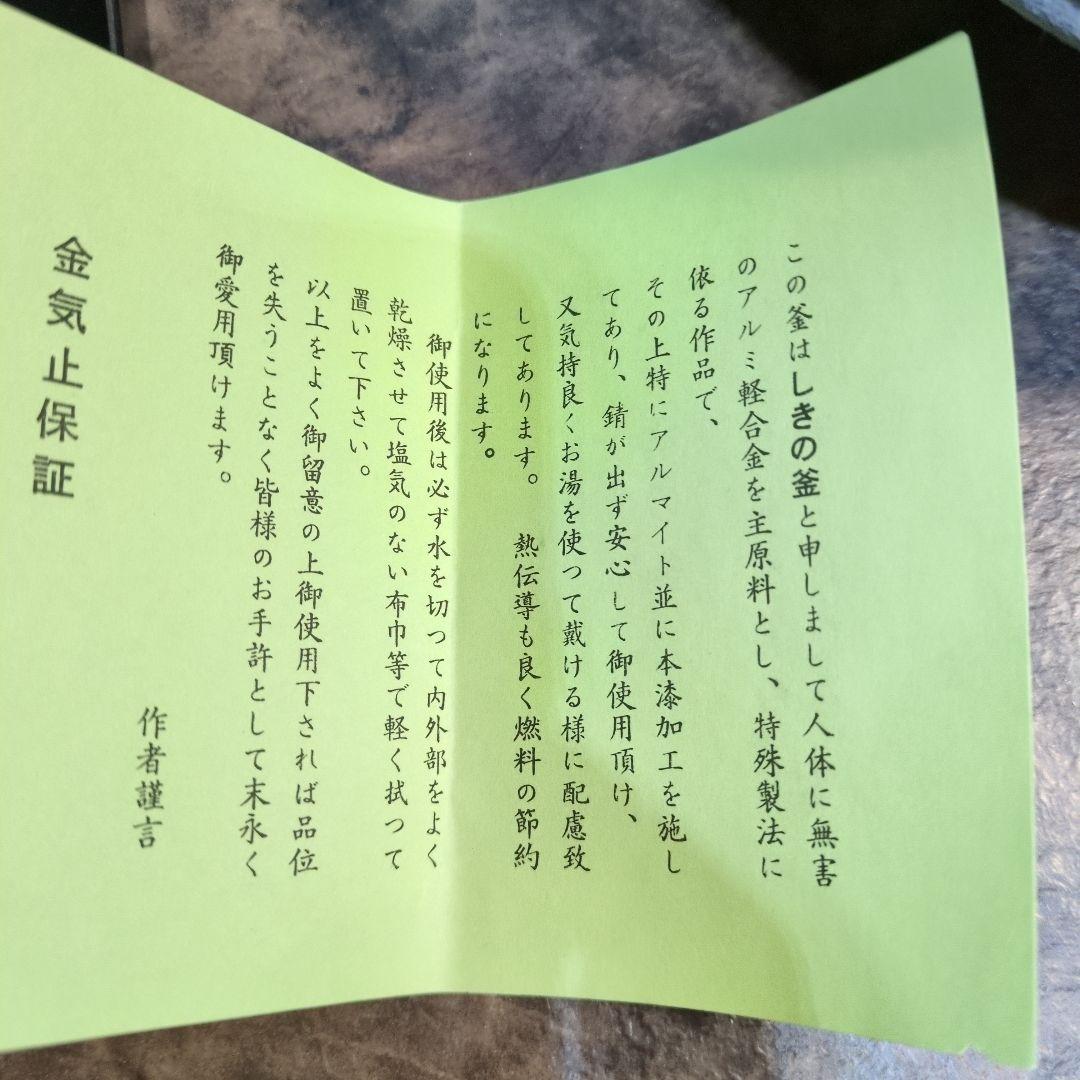 この釜はしきの釜と申しまして人体に無害
のアルミ軽合金を主原料とし、特殊製法に
依る作品で、
その上特にアルマイト並に本漆加工を施し
てあり、錆が出ず安心して御使用頂け、
又気持良くお湯を使つて戴ける様に配慮致
してあります。 熱伝導も良く燃料の節約
になります。
御使用後は必ず水を切つて内外部をよく
乾燥させて塩気のない布巾等で軽く拭つて
置いて下さい。
以上をよく御留意の上御使用下されば品位
を失うことなく皆様のお手許として末永く
御愛用頂けます。
作者謹言
金気止保証